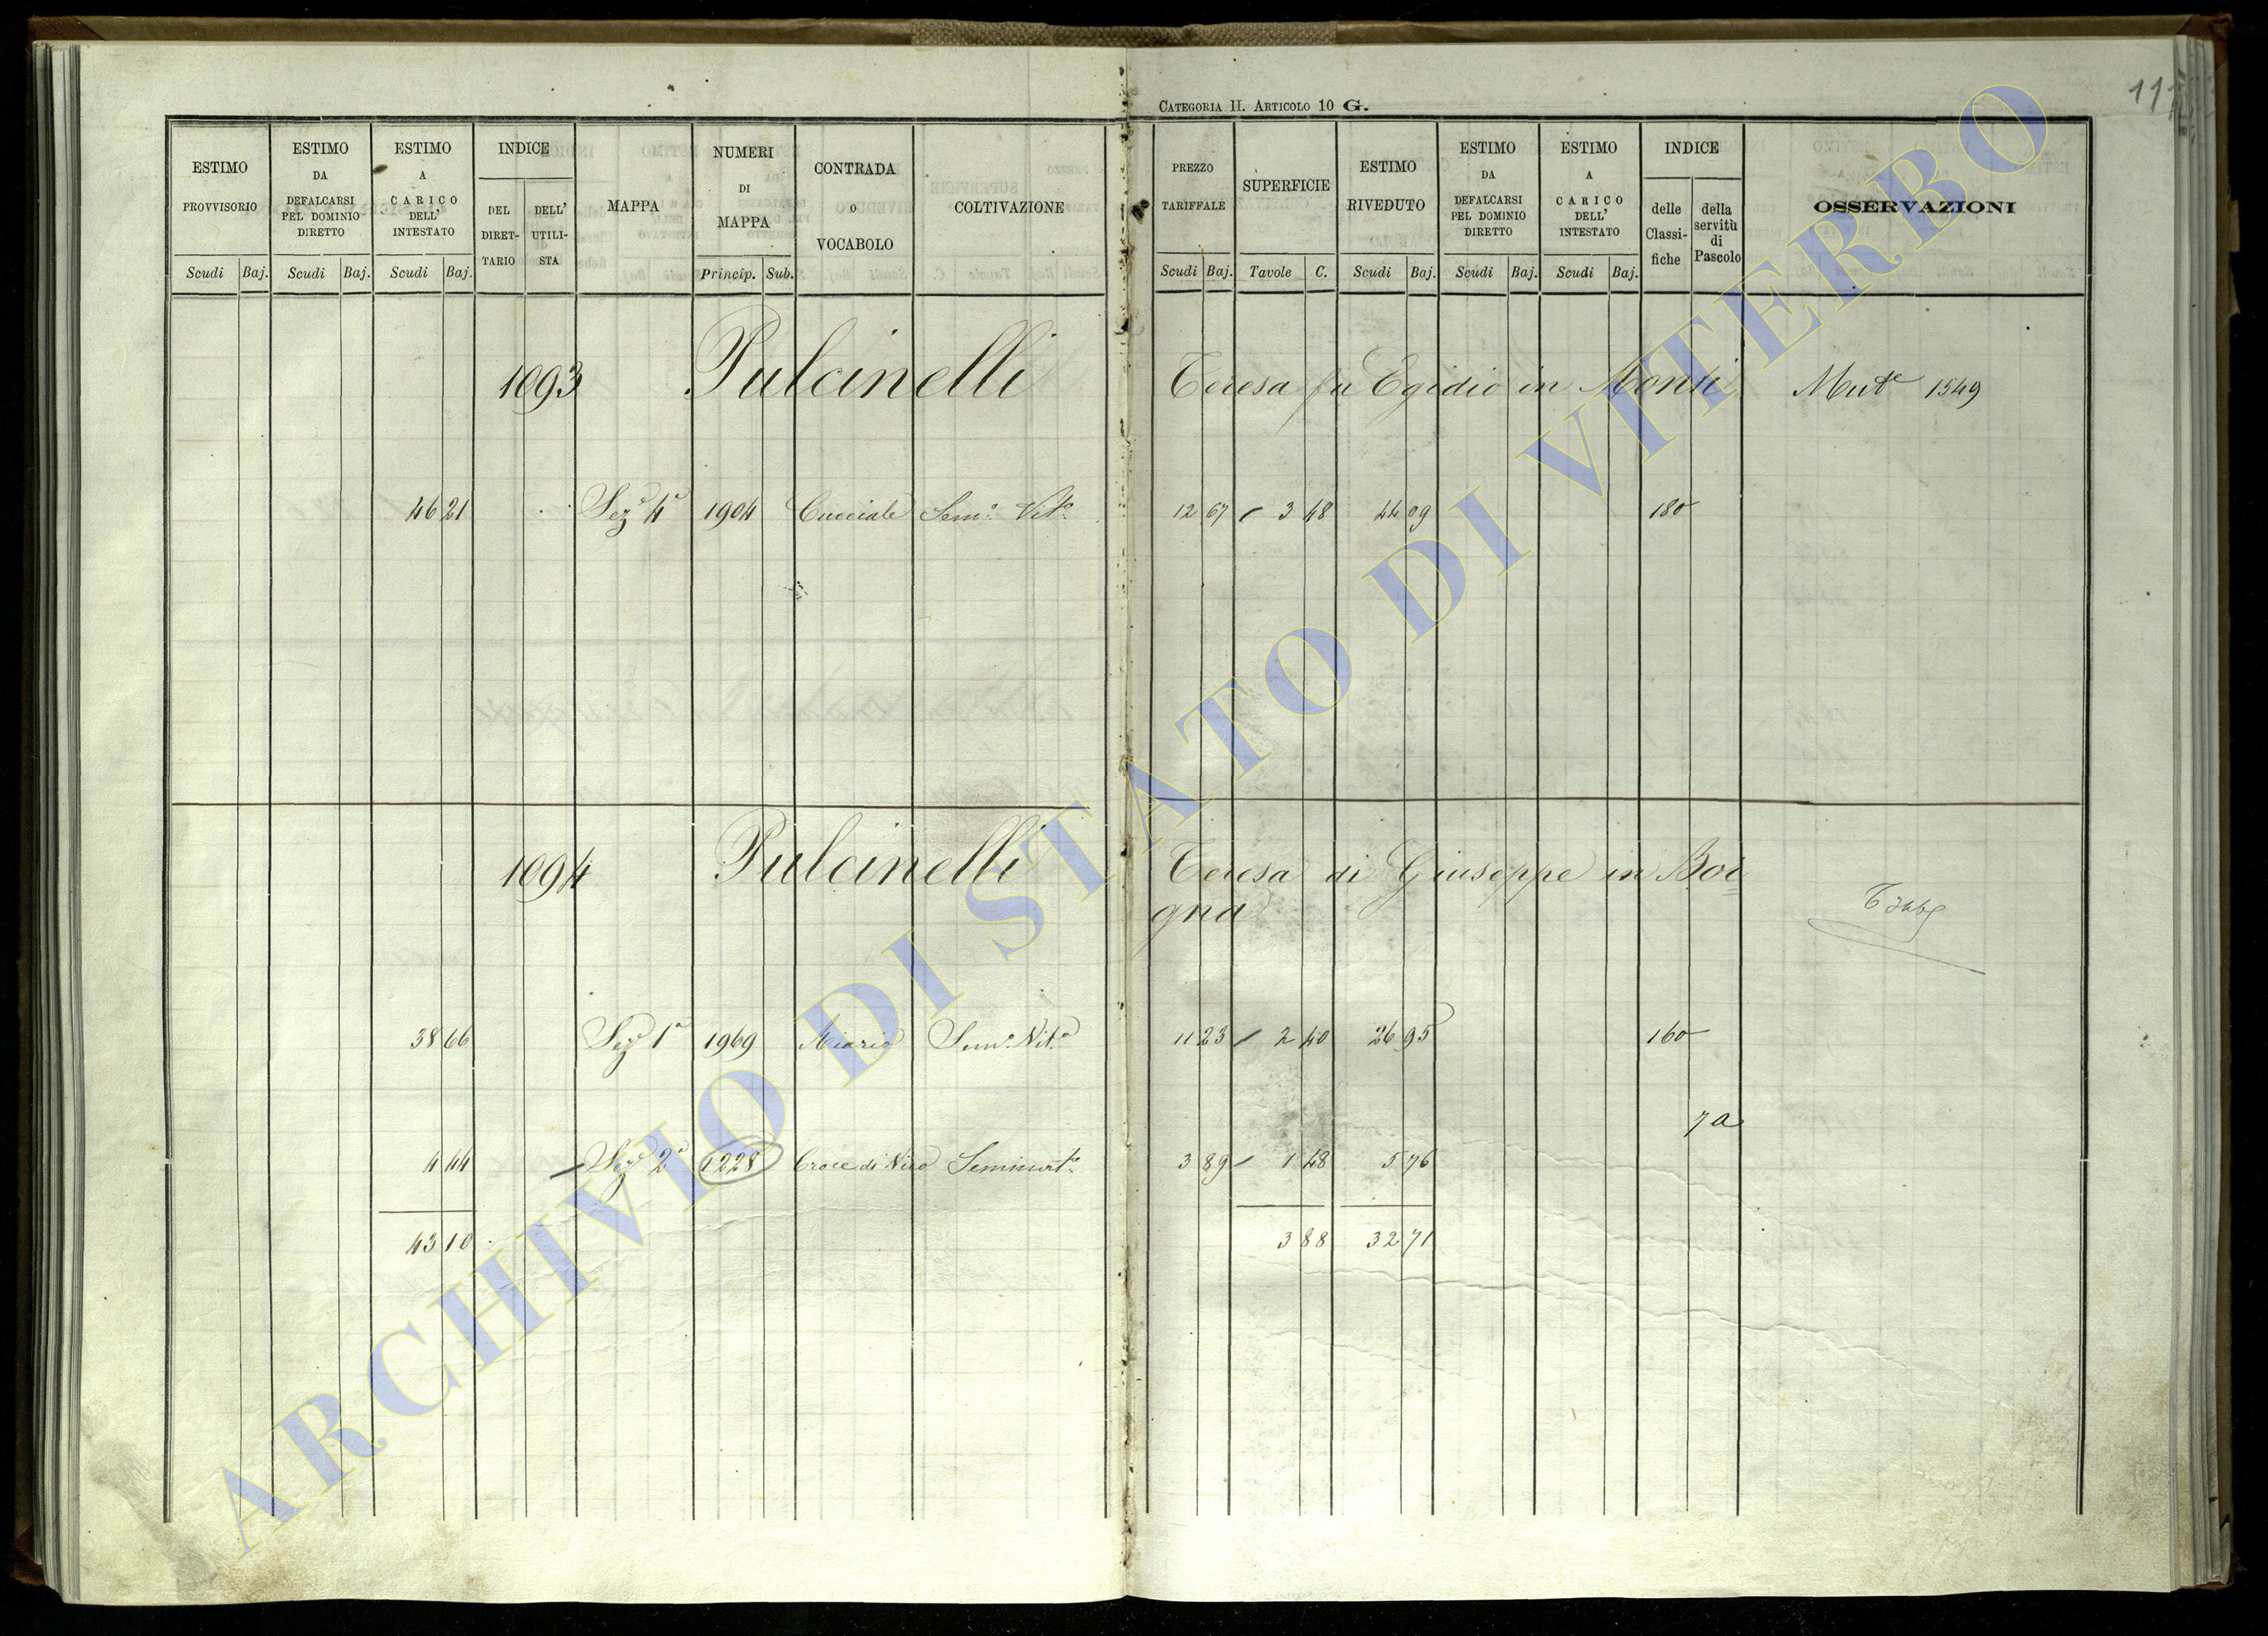 CATEGORIA II. ARTICOLO 10 G.
ESTIMO PROVVISORIO
Scudi Baj.
ESTIMO DA DEFALCARSI PEL DOMINIO DIRETTO
Scudi Baj.
ESTIMO A CARICO DELL' INTESTATO
Scudi Baj.
INDICE
DEL DIRET-TARIO
DELL' UTILI-STA
MAPPA
NUMERI DI MAPPA
Princip. Sub.
CONTRADA O VOCABOLO
COLTIVAZIONE
PREZZO TARIFFALE
Scudi Baj.
SUPERFICIE
Tavole C.
ESTIMO RIVEDUTO
Scudi Baj.
ESTIMO DA DEFALCARSI PEL DOMINIO DIRETTO
Scudi Baj.
ESTIMO A CARICO DELL' INTESTATO
Scudi Baj.
INDICE
delle Classi-fiche
della servitù di Pascolo
OSSERVAZIONI
1093 Pulcinelli Teresa fu Egidio in Monti Mut.e 1549
46 21 Sez.e 4a 1904 Cucciale Sem.o Vit.o 12 67 3 48 44 09 180
1094 Pulcinelli Teresa di Giuseppe in Bor
gna
38 66 Sez.e 1a 1969 Sem.o Vit.o 11 23 2 40 26 95 160
7a
4 44 Sez.e 2a 1228 Croce di Nico Seminat.o 3 89 1 48 5 76
43 10 3 88 32 71
ARCHIVIO DI STATO DI VITERBO